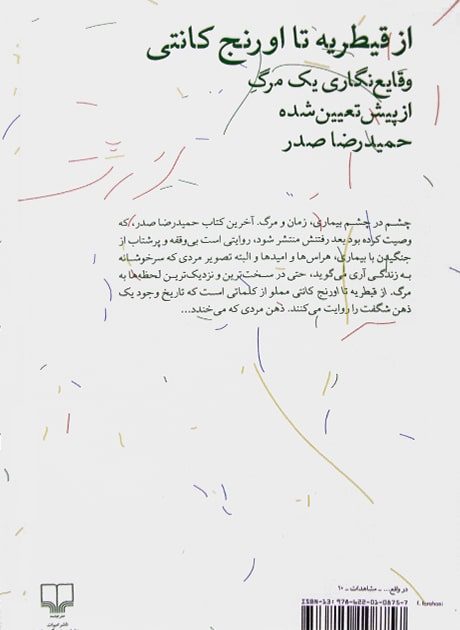 از قیطریه تا اورنج کانتی
وقایع‌نگاری یک مرگ
از پیش تعیین‌شده
حمیدرضا صدر
چشم در چشم بیماری، زمان و مرگ. آخرین کتاب حمیدرضا صدر، که
وصیت کرده بود بعد رفتنش منتشر شود، روایتی است بی‌وقفه و پرشتاب از
جنگیدن با بیماری، هراس‌ها و امیدها و البته تصویر مردی که سرخوشانه
به زندگی آری می‌گوید، حتی در سخت‌ترین و نزدیک‌ترین لحظه‌ها به
مرگ. از قیطریه تا اورنج کانتی مملو از کلماتی است که تاریخ وجود یک
ذهن شگفت را روایت می‌کنند. ذهن مردی که می‌خندد...
در واقع... - مشاهدات - ۱۰
ISBN-13: 978-622-01-0875-7
f. farahani
نشر چشمه